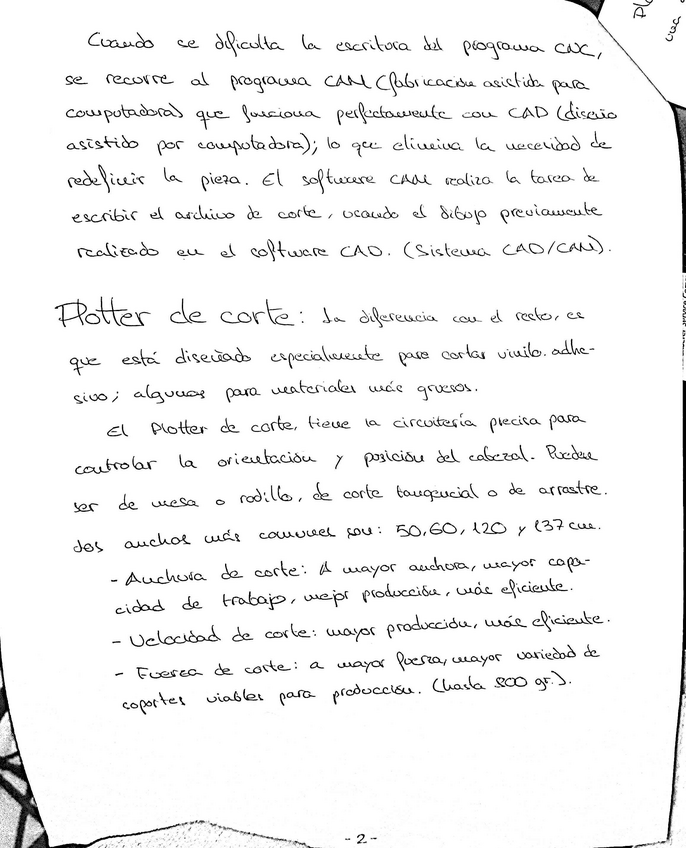 Cuando se dificulta la escritura del programa CNC,
se recurre al programa CAM (fabricación asistida para
computadora) que funciona perfectamente con CAD (diseño
asistido por computadora); lo que elimina la necesidad de
redefinir la pieza. El software CAM realiza la tarea de
escribir el archivo de corte, usando el dibujo previamente
realizado en el software CAD. (Sistema CAD/CAM).
Plotter de corte: La diferencia con el resto, es
que está diseñado especialmente para cortar vinilo adhe-
sivo; algunos para materiales más gruesos.
El Plotter de corte, tiene la circuitería precisa para
controlar la orientación y posición del cabezal. Pueden
ser de mesa o rodillo, de corte tangencial o de arrastre.
Los anchos más comunes son: 50, 60, 120 y 137 cm.
- Anchura de corte: A mayor anchura, mayor capa-
cidad de trabajo, mejor producción, más eficiente.
- Velocidad de corte: mayor producción, más eficiente.
- Fuerza de corte: a mayor fuerza, mayor variedad de
soportes viables para producción. (hasta 800 gr.).
- 2 -